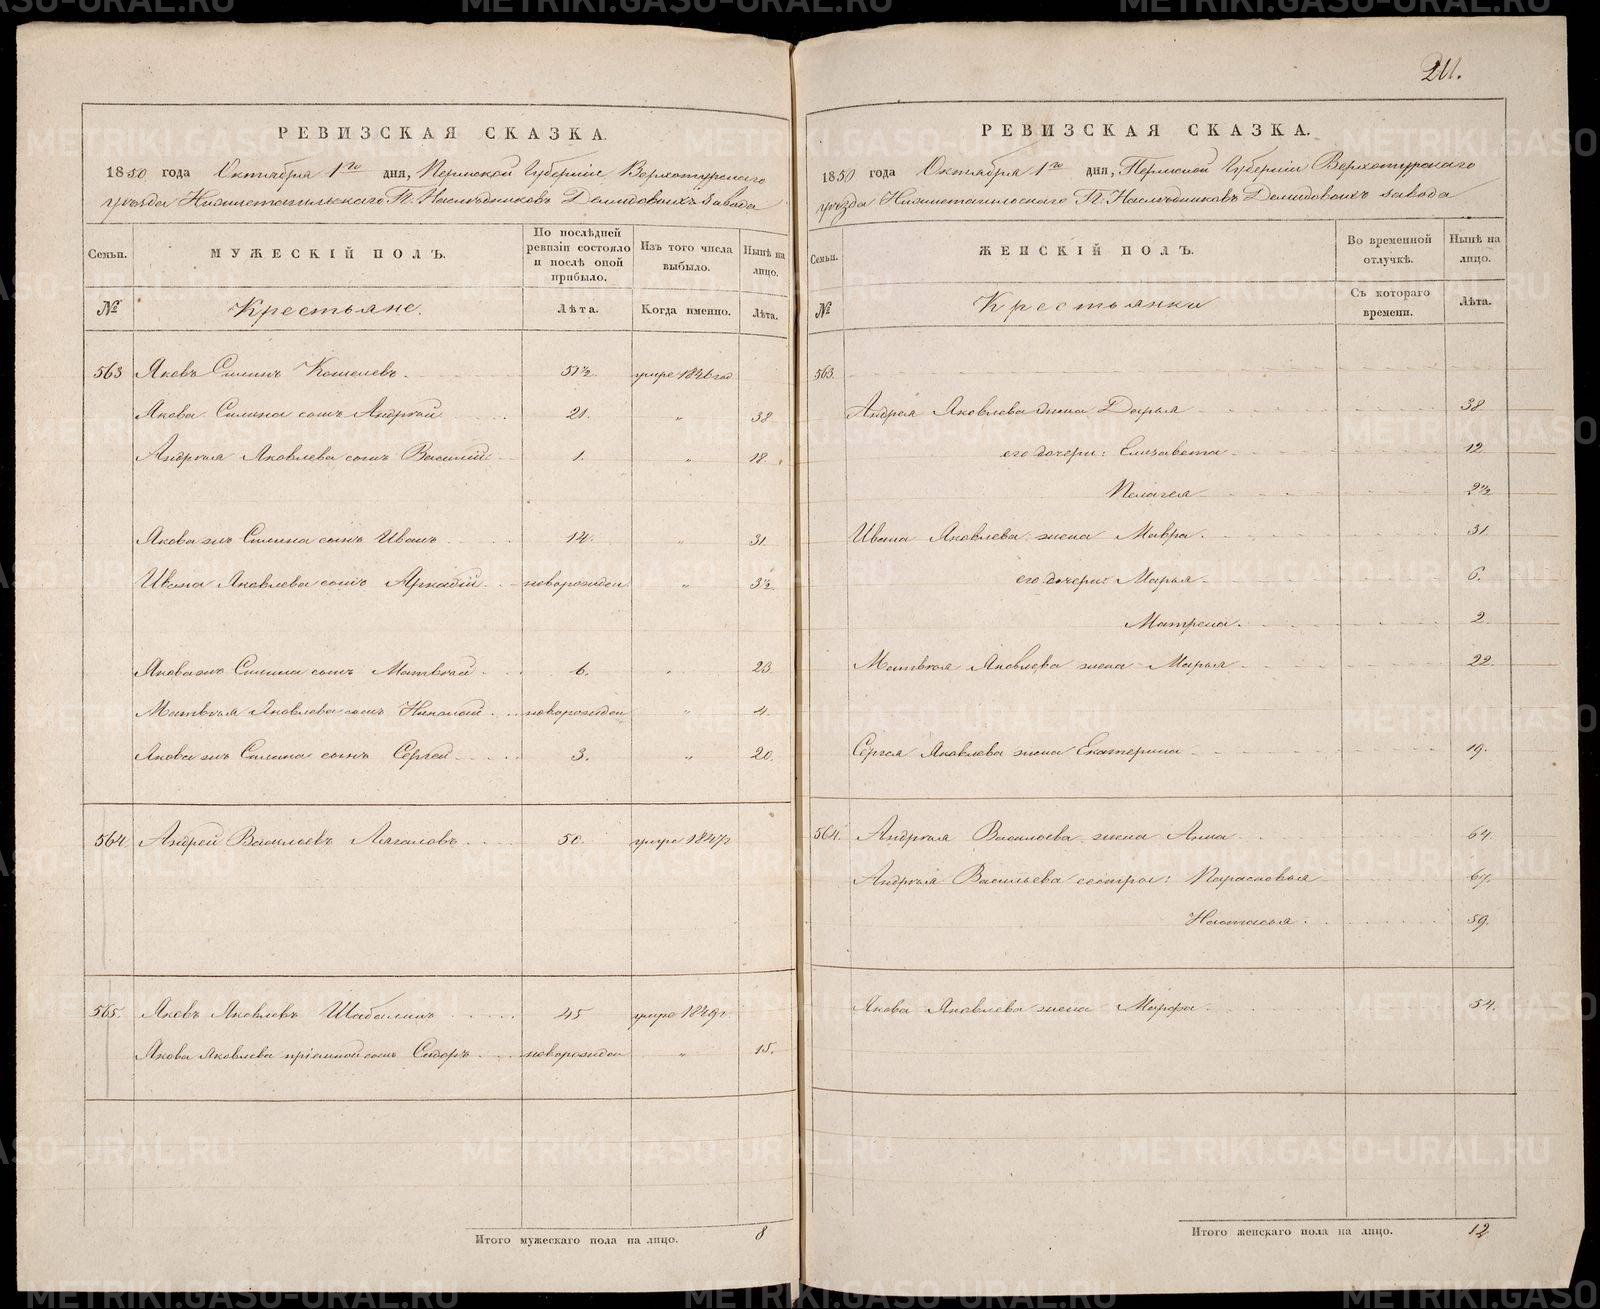 211.
РЕВИЗСКАЯ СКАЗКА.
1850 года Октября 1го дня, Пермской Губернiи Верхотурскаго
уѣзда Нижнетагильскаго Г.г. Наслѣдниковъ Демидовыхъ завода
Семьи. МУЖЕСКІЙ ПОЛЪ. По послѣдней ревизіи состояло и послѣ оной прибыло. Изъ того числа выбыло. Нынѣ на лицо.
№ Крестьяне. Лѣта. Когда именно. Лѣта.
563 Яковъ Силинъ Кошелевъ. 51½ умре 1846 год
Якова Силина сынъ Андрѣй 21. " 38
Андрѣя Яковлева сынъ Василій 1. " 18.
Якова жъ Силина сынъ Иванъ 14. " 31
Ивана Яковлева сынъ Аркадій новорожден " 3½
Якова жъ Силина сынъ Матвѣй 6. " 23
Матвѣя Яковлева сынъ Николай новорожден " 4.
Якова жъ Силина сынъ Сергей 3. " 20.
564 Андрей Васильевъ Лягаловъ 50. умре 1847г
565. Яковъ Яковлевъ Шабалинъ 45 умре 1849г.
Якова Яковлева пріемной сынъ Сидоръ новорожден " 15.
Итого мужескаго пола на лицо. 8
РЕВИЗСКАЯ СКАЗКА.
1850 года Октября 1го дня, Пермской Губерніи Верхотурскаго
уѣзда Нижнетагильскаго Г.г. Наслѣдниковъ Демидовыхъ завода
Семьи. ЖЕНСКІЙ ПОЛЪ. Во временной отлучкѣ. Нынѣ на лицо.
№ Крестьянки Съ котораго времени. Лѣта.
563.
Андрея Яковлева жена Дарья 38
его дочери: Елизавета 12
Пелагея 2½
Ивана Яковлева жена Мавра. 31.
его дочери: Марья 6.
Матрена. 2
Матвѣя Яковлева жена Марья 22
Сергея Яковлева жена Екатерина 19.
564. Андрѣя Васильева жена Анна 64.
Андрѣя Васильева сестры: Парасковья 67.
Настасья. 59.
Якова Яковлева жена Марфа 54.
Итого женскаго пола на лицо. 12
METRIKI.GASO-URAL.RU